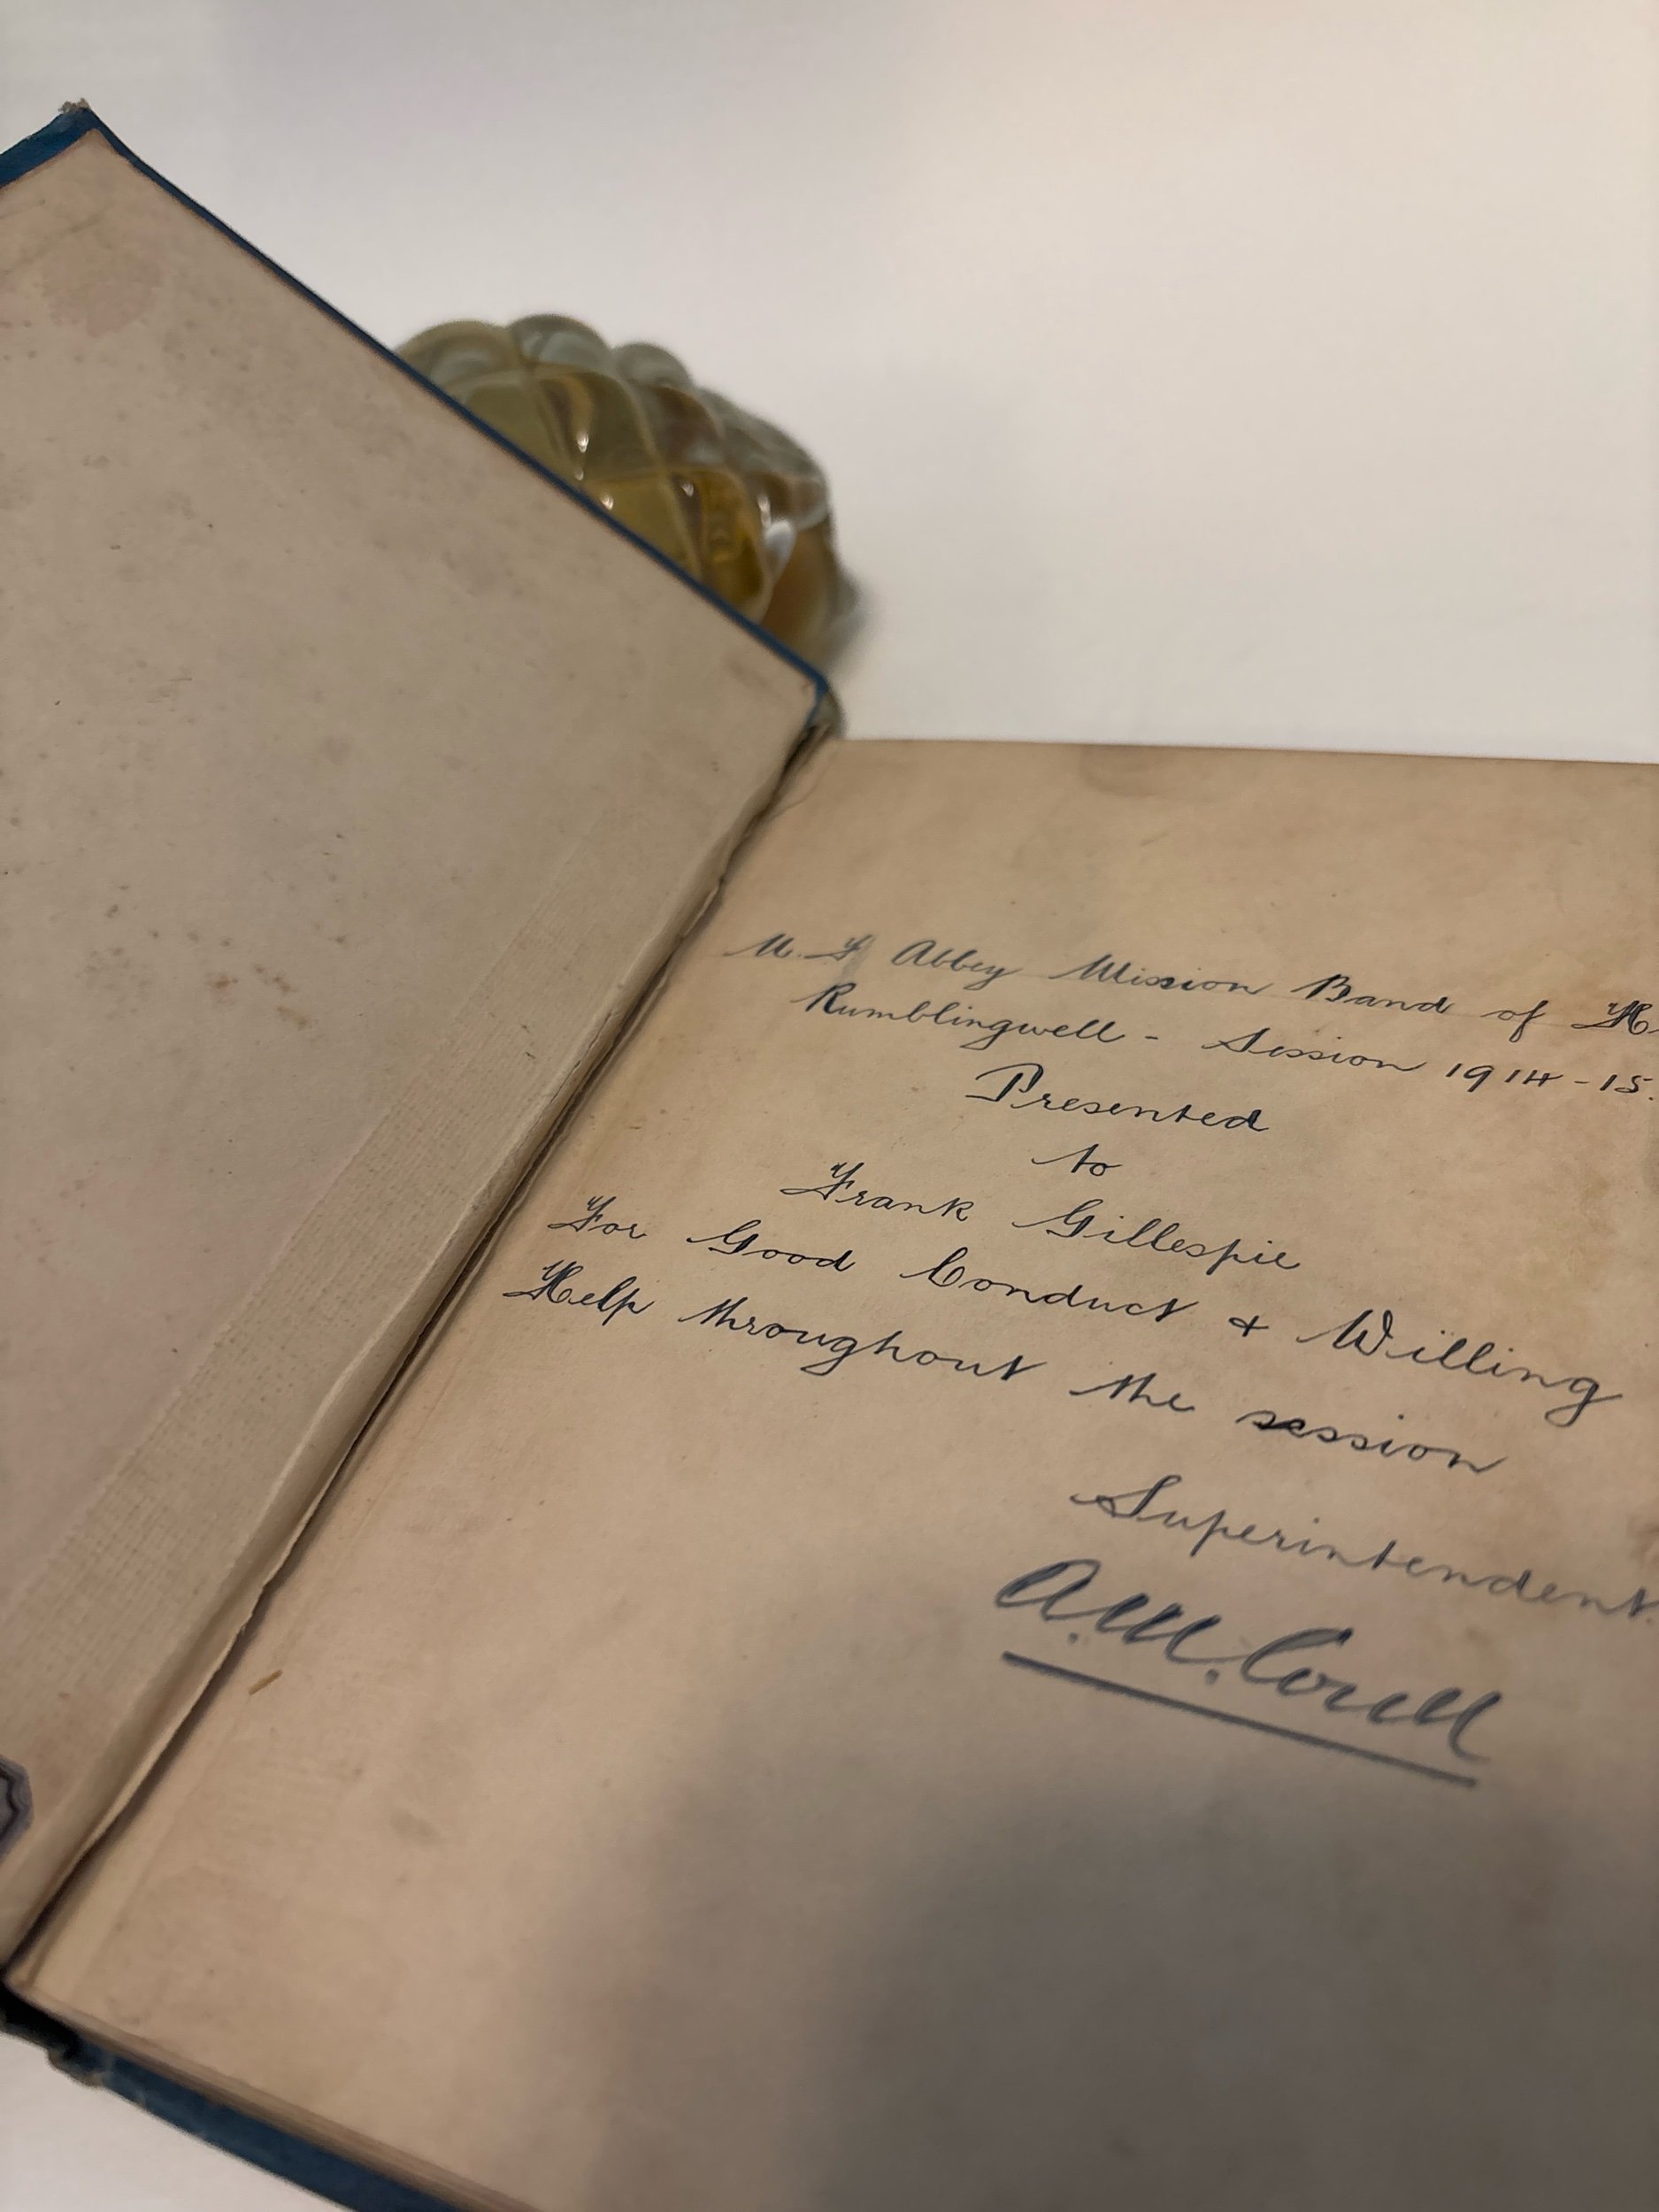 U. F. Abbey Mission Band of H.
Rumblingwell - Session 1914-15.
Presented
to
Frank Gillespie
For Good Conduct + Willing
Help throughout the session
Superintendent.
A. M.